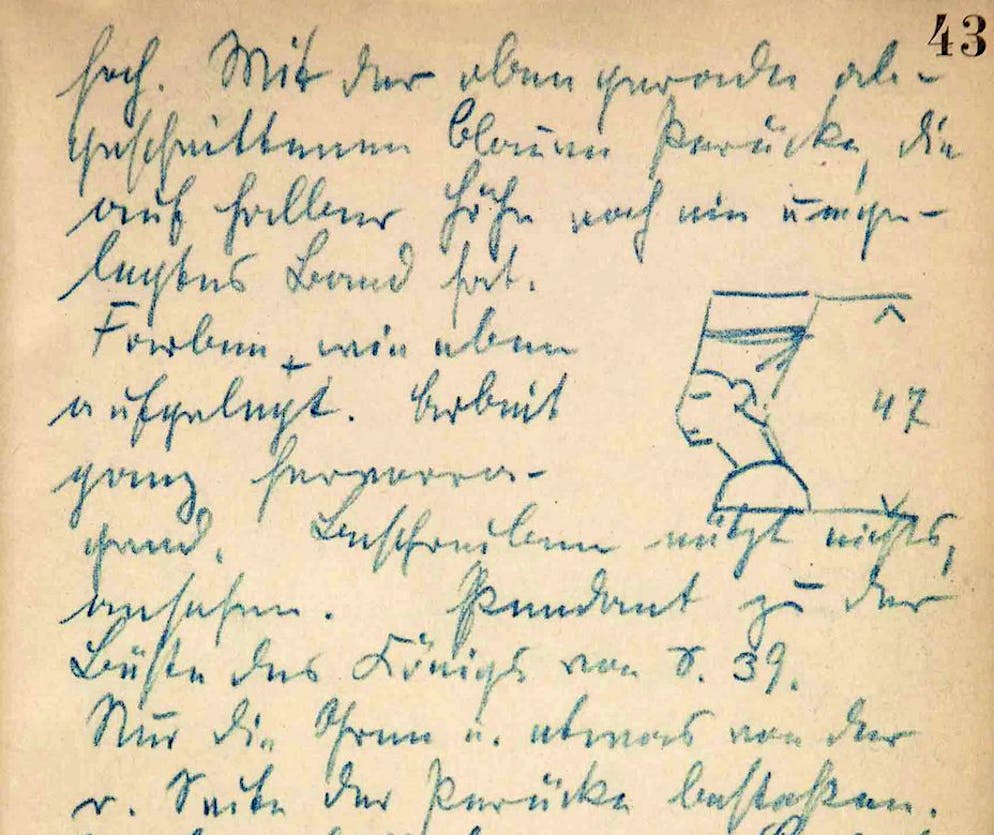 43
hoch. Mit der oben gerade ab-
geschnittenen blauen Perücke, die
auf halber Höhe noch ein umge-
legtes Band hat.
Farben wie eben
aufgelegt. Arbeit
ganz hervorra-
47
gend. Beschreiben nützt nichts,
ansehen. Pendant zu der
Büste des Königs von S. 39.
Nur die Ohren u. etwas von der
r. Seite der Perücke bestoßen.